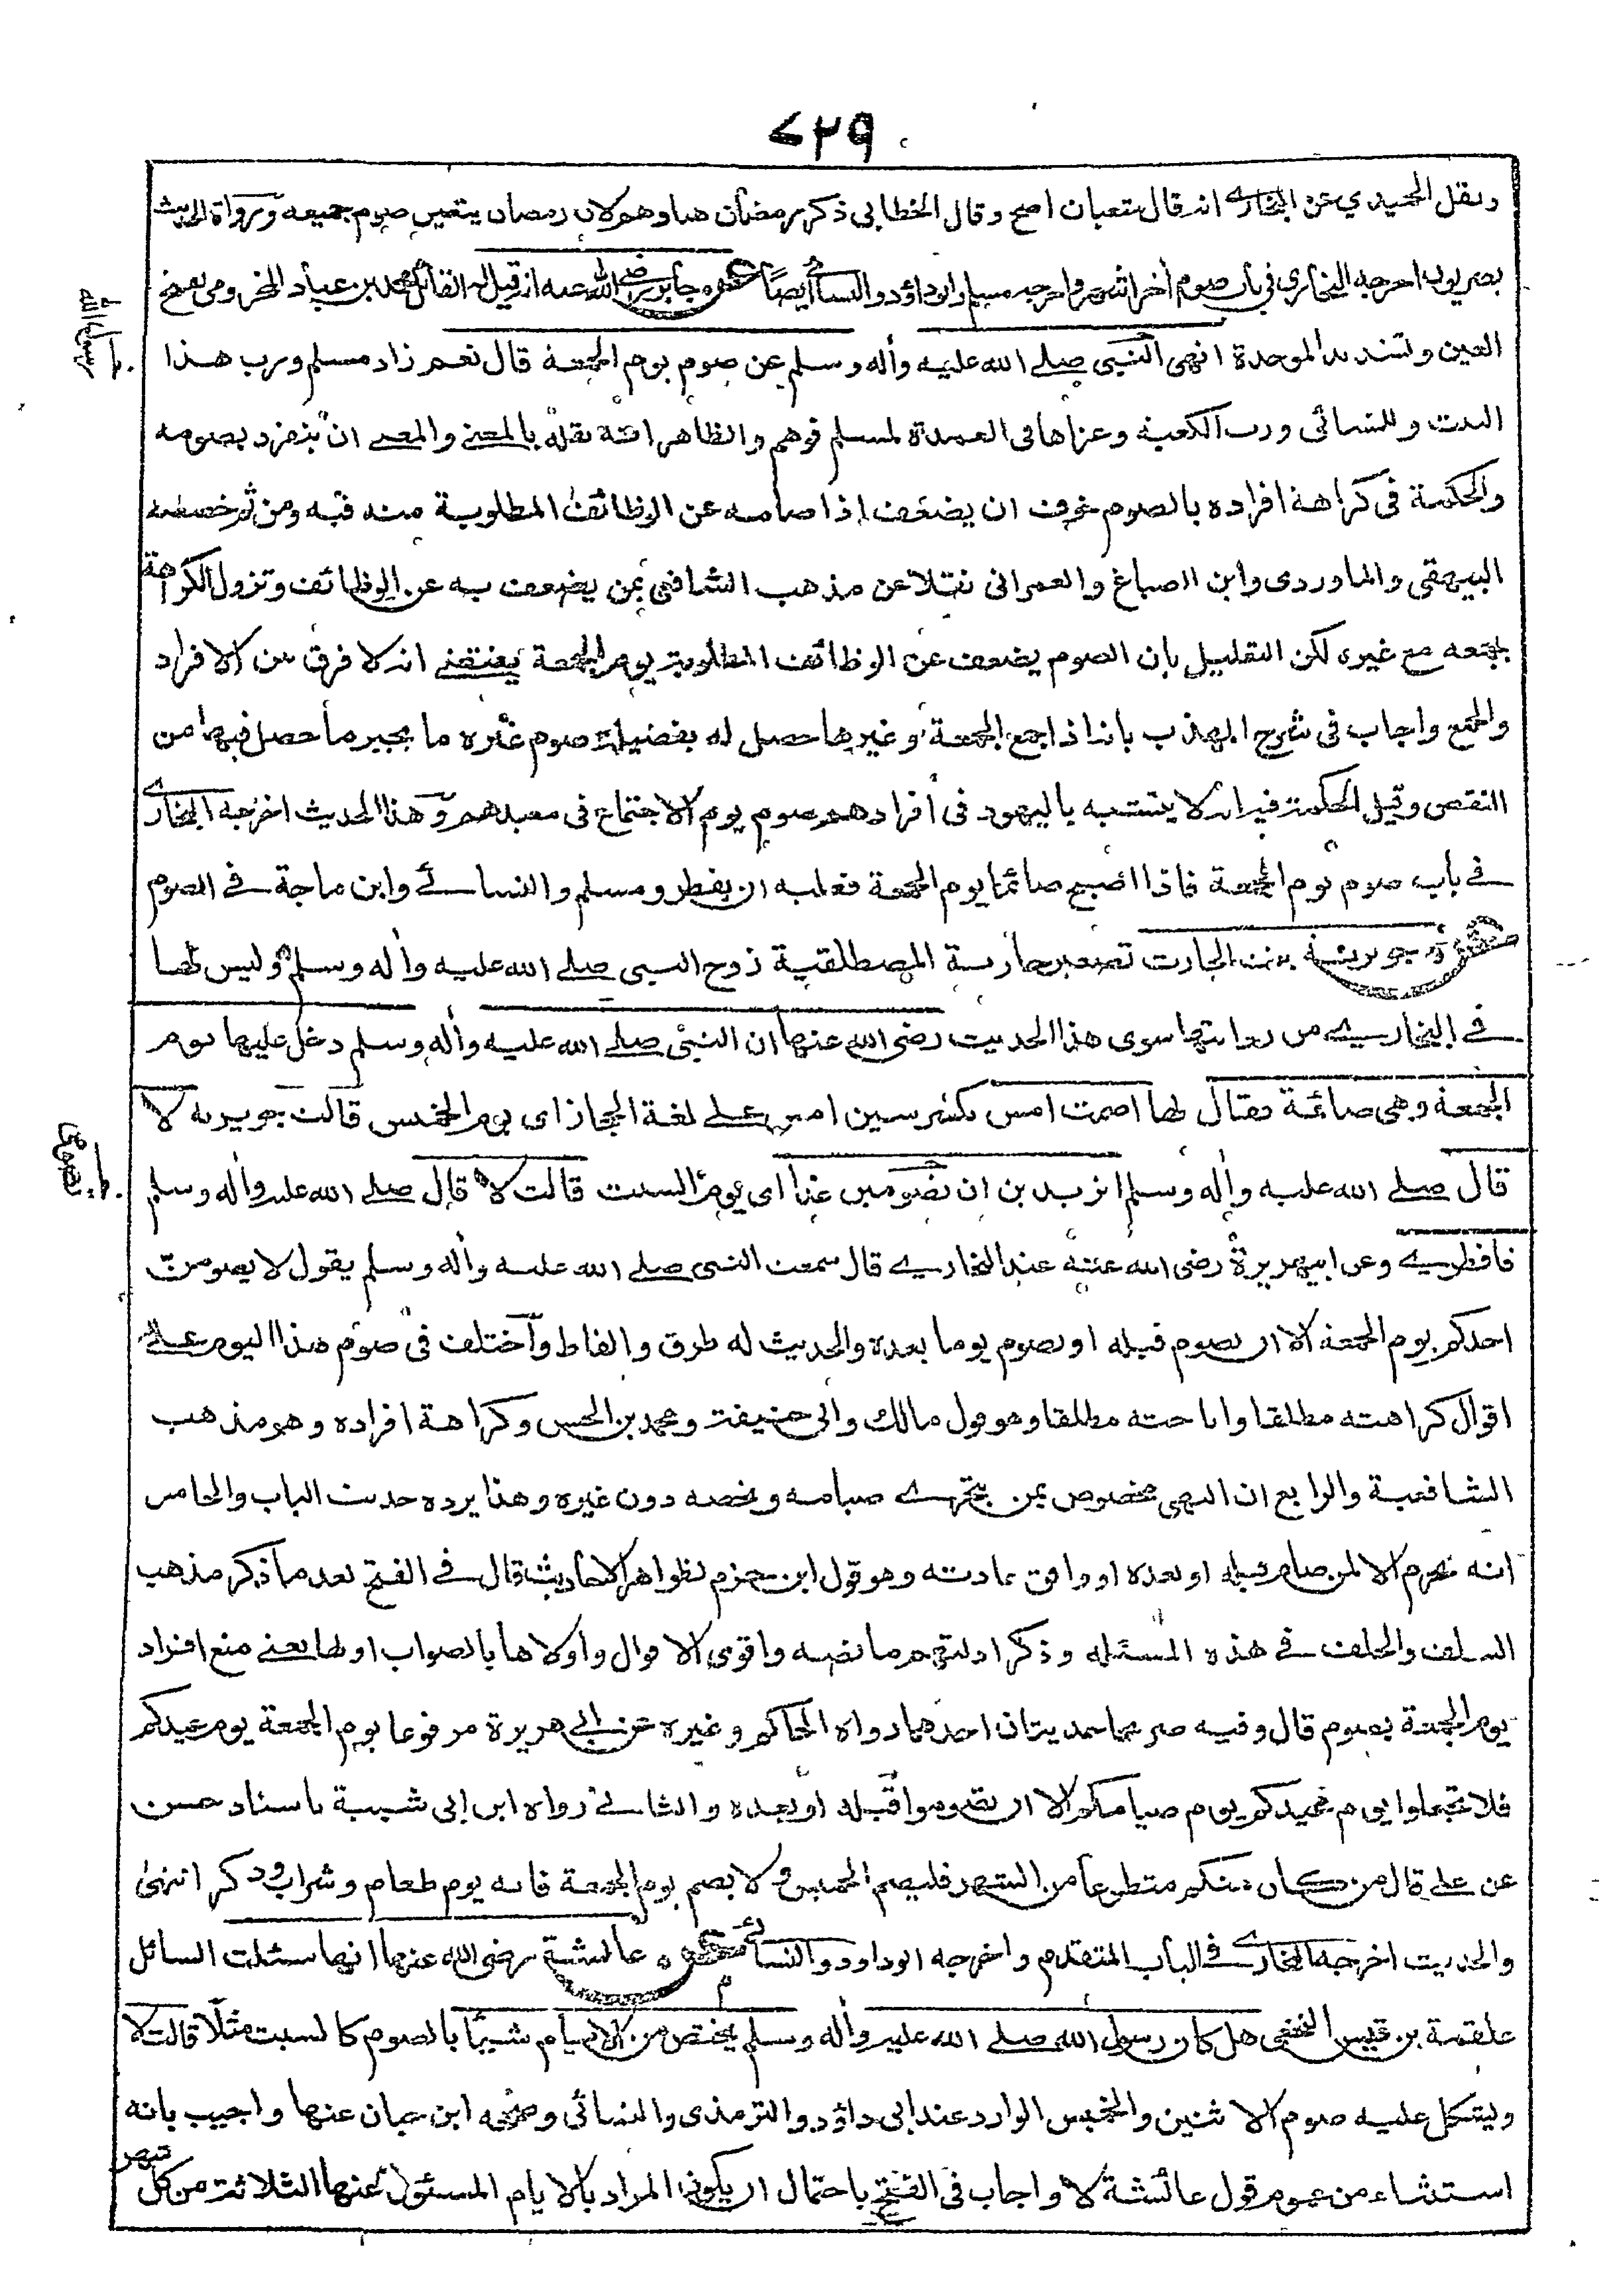 ٤٢٩
ونقل الحميدي عن البخاري انه قال شعبان اصح وقال الخطابي ذكر رمضان هنا وهم لان رمضان يتعين صوم جميعه ورواة الحديث
بصريون اخرجه البخاري في باب صوم آخر الشهر واخرجه مسلم وابو داؤد والنسائي ايضاً عن جابر رضي الله عنه انه قيل له القائل محمد بن عباد المخزومي بفتح
العين وتشديد الموحدة انهى النبي صلى الله عليه وأله وسلم عن صوم يوم الجمعة قال نعم زاد مسلم ورب هذا
البيت وللنسائي ورب الكعبة وعزاها في العمدة لمسلم فوهم والظاهر انه نقله بالمعنى والمعنى ان ينفرد بصومه
والحكمة في كراهة افراده بالصوم خوف ان يضعف اذا صامه عن الوظائف المطلوبة منه فيه ومن ثم خصصه
البيهقي والماوردي وابن الصباغ والعمراني نقلا عن مذهب الشافعي بمن يضعف به عن الوظائف وتزول الكراهة
بجمعه مع غيره لكن التعليل بان الصوم يضعف عن الوظائف المطلوبة يوم الجمعة يقتضى انه لا فرق بين الافراد
والجمع واجاب في شرح المهذب بانه اذا جمع الجمعة وغيرها حصل له بفضيلة صوم غيره ما يجبر ما حصل فيها من
النقص وقيل الحكمة فيه انه لا يتشبه باليهود في افرادهم صوم يوم الاجتماع في معبدهم وهذا الحديث اخرجه البخاري
في باب صوم يوم الجمعة فاذا اصبح صائما يوم الجمعة فعليه ان يفطر ومسلم والنسائي وابن ماجة في الصوم
عن جويرية بنت الحارث تصغير جارية المصطلقية زوج النبي صلى الله عليه وأله وسلم وليس لها
في البخاري من روايتها سوى هذا الحديث رضي الله عنها ان النبي صلى الله عليه وأله وسلم دخل عليها يوم
الجمعة وهي صائمة فقال لها اصمت امس بكسر سين امس على لغة الحجاز اي يوم الخميس قالت جويرية لا
قال صلى الله عليه وأله وسلم اتريدين ان تصومين غدا اي يوم السبت قالت لا قال صلى الله عليه وأله وسلم
فافطري وعن ابي هريرة رضي الله عنه عند البخاري قال سمعت النبي صلى الله عليه وأله وسلم يقول لا يصومن
احدكم يوم الجمعة الا ان يصوم قبله او يصوم يوما بعده والحديث له طرق والفاظ واختلف في صوم هذا اليوم على
اقوال كراهته مطلقا واباحته مطلقا وهو قول مالك وابي حنيفة ومحمد بن الحسن وكراهة افراده وهو مذهب
الشافعية والرابع ان النهي مخصوص بمن يتحرى صيامه ويخصه دون غيره وهذا يرده حديث الباب والخامس
انه يحرم الا لمن صام قبله او بعده او وافق عادته وهو قول ابن حزم لظواهر الاحاديث قال في الفتح بعد ما ذكر مذهب
السلف والخلف في هذه المسئلة وذكر ادلتهم ما نصه واقوى الاقوال وأولاها بالصواب اولها يعني منع افراد
يوم الجمعة بصوم قال وفيه صريحا حديثان احدهما رواه الحاكم وغيره عن ابي هريرة مرفوعا يوم الجمعة يوم عيدكم
فلا تجعلوا يوم عيدكم يوم صيامكم الا ان تصوموا قبله او بعده والثاني رواه ابن ابي شيبة باسناد حسن
عن علي قال من كان منكم متطوعا من الشهر فليصم الخميس ولا يصم يوم الجمعة فانه يوم طعام وشراب وذكر انتهى
والحديث اخرجه البخاري في الباب المتقدم واخرجه ابو داود والنسائي عن عائشة رضي الله عنها انها سئلت السائل
علقمة بن قيس النخعي هل كان رسول الله صلى الله عليه وأله وسلم يختص من الايام شيئا بالصوم كالسبت مثلا قالت لا
ويشكل عليه صوم الاثنين والخميس الوارد عند ابي داؤد والترمذي والنسائي وصححه ابن حبان عنها واجيب بانه
استثناء من عموم قول عائشة لا واجاب في الفتح باحتمال ان يكون المراد بالايام المسئول عنها الثلاثة من كل شهر